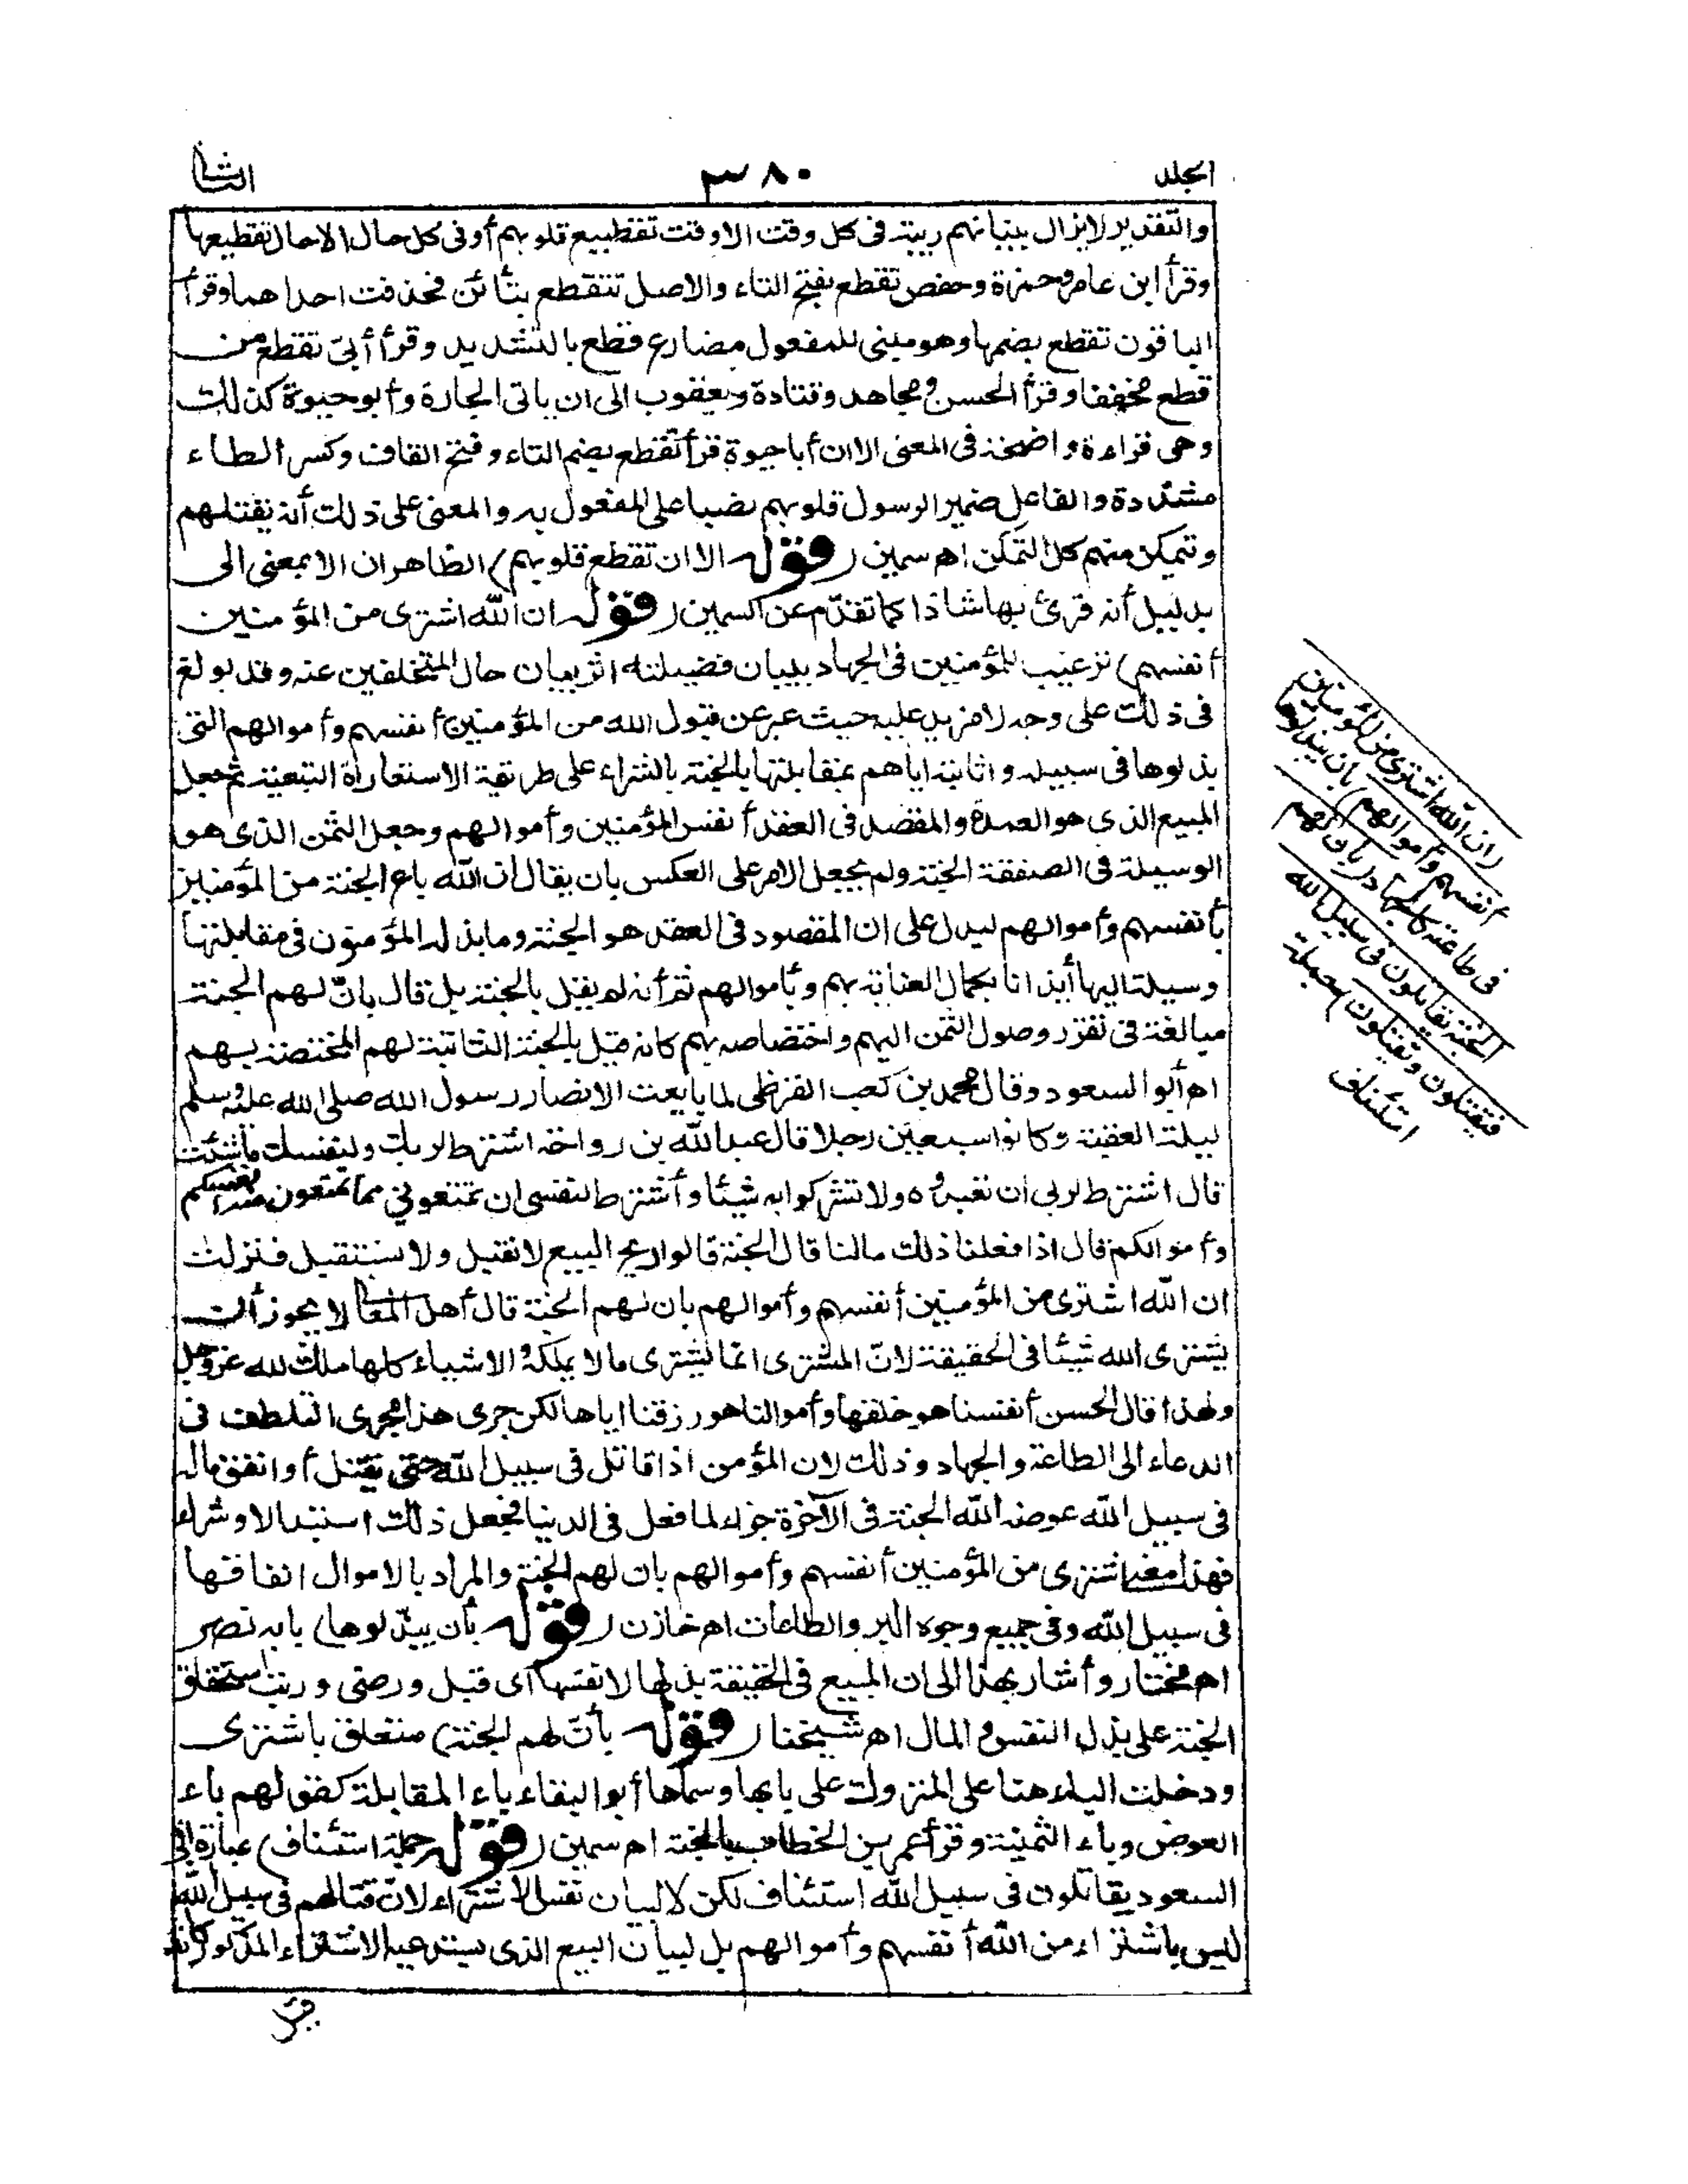 الجلد
٣٨٠
الثانى
والتقدير لايزال بنيانهم ريبة فى كل وقت الا وقت تقطيع قلوبهم أو فى كل حال الا حال تقطيعها
وقرأ ابن عامر وحمزة وحفص تقطع بفتح التاء والاصل تتقطع بتائين فحذفت احداهما وقرأ
الباقون تقطع بضمها وهو مبنى للمفعول مضارع قطع بالتشديد وقرأ أبىّ تقطع من
قطع مخففا وقرأ الحسن ومجاهد وقتادة ويعقوب الى ان باتى الجارة وأبو حيوة كذلك
وهى قراءة واضحة فى المعنى الا ان أبا حيوة قرأ تقطع بضم التاء وفتح القاف وكسر الطاء
مشددة والفاعل ضمير الرسول قلوبهم نصبا على المفعول به والمعنى على ذلك أنه يقتلهم
وتمكن منهم كل التمكن اه سمين (قوله الا ان تقطع قلوبهم) الظاهر ان الا بمعنى الى
بدليل أنه قرئ بها شاذا كما تقدّم عن السمين (قوله ان اللّه اشترى من المؤمنين
أنفسهم) ترغيب للمؤمنين فى الجهاد ببيان فضيلته اثر بيان حال المتخلفين عنه وقد بولغ
فى ذلك على وجه لا مزيد عليه حيث عبر عن قبول الله من المؤمنين أنفسهم وأموالهم التى
بذلوها فى سبيله واثابته اياهم بمقابلتها بالجنة بالشراء على طريقة الاستعارة التبعية ثم جعل
المبيع الذى هو العمدة والمقصد فى العقد أنفس المؤمنين وأموالهم وجعل الثمن الذى هو
الوسيلة فى الصفقة الجنة ولم يجعل الامر على العكس بان يقال ان اللّه باع الجنة من المؤمنين
بأنفسهم وأموالهم ليدل على ان المقصود فى العقد هو الجنة وما بذله المؤمنون فى مقابلتها
وسيلة اليها أيذانا بكمال العناية بهم وبأموالهم ثم أنه لم يقل بالجنة بل قال بانّ لهم الجنة
مبالغة فى تقرر وصول الثمن اليهم واختصاصه بهم كانه قيل بالجنة الثابتة لهم المختصة بهم
اه أبو السعود وقال محمد بن كعب القرظى لما بايعت الانصار رسول الله صلى الله عليه وسلم
ليلة العقبة وكانوا سبعين رجلا قال عبد اللّه بن رواحة اشترط لربك ولنفسك ما شئت
قال اشترط لربى ان تعبدوه ولا تشركوا به شيئا وأشترط لنفسى ان تمنعونى مما تمنعون منه أنفسكم
وأموالكم قال اذا فعلنا ذلك مالنا قال الجنة قالوا ربح البيع لا نقيل ولا نستقيل فنزلت
ان اللّه اشترى من المؤمنين أنفسهم وأموالهم بان لهم الجنة قال أهل المعانى لا يجوز أن
يشترى الله شيئا فى الحقيقة لانّ المشترى انما يشترى ما لا يملكه والاشياء كلها ملك لله عز وجل
ولهذا قال الحسن أنفسنا هو خلقها وأموالنا هو رزقنا اياها لكن جرى هذا مجرى التلطف فى
الدعاء الى الطاعة والجهاد وذلك لان المؤمن اذا قاتل فى سبيل اللّه حتى يقتل أو انفق ماله
فى سبيل اللّه عوضه اللّه الجنة فى الآخرة جزاء لما فعل فى الدنيا فجعل ذلك استبدالا وشراء
فهذا معنى اشترى من المؤمنين أنفسهم وأموالهم بان لهم الجنة والمراد بالاموال انفاقها
فى سبيل اللّه وفى جميع وجوه البر والطاعات اه خازن (قوله بأن يبذلوها) بابه نصر
اه مختار وأشار بهذا الى ان المبيع فى الحقيقة بذلها لا نفسها أى قبل ورضى ورتب استحقاق
الجنة على بذل النفس والمال اه شيخنا (قوله بأنّ لهم الجنة) متعلق باشترى
ودخلت الباء هنا على المتروك على بابها وسماها أبو البقاء باء المقابلة كقولهم باء
العوض وباء الثمنية وقرأ عمر بن الخطاب بالجنة اه سمين (قوله جملة استئناف) عبارة أبى
السعود يقاتلون فى سبيل اللّه استئناف لكن لا لبيان نفس الاشتراء لانّ قتالهم فى سبيل اللّه
ليس باشتراء من اللّه أنفسهم وأموالهم بل لبيان البيع الذى يستدعيه الاشتراء المذكور كانه
(ان اللّه اشترى من المؤمنين
أنفسهم وأموالهم) بان يبذلوها
فى طاعته كالجهاد (بان لهم
الجنة يقاتلون فى سبيل الله
فيقتلون ويقتلون) جملة
استئناف